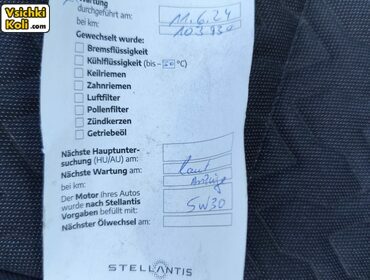 Vsichki
Koli.com
Wartung
durchgeführt am: 11.6.24
bei km: 103930
Gewechselt wurde:
Bremsflüssigkeit
Kühlflüssigkeit (bis – 20 °C)
Keilriemen
Zahnriemen
Luftfilter
Pollenfilter
Zündkerzen
Getriebeöl
Nächste Hauptunter-
suchung (HU/AU) am:
Nächste Wartung am: laut
bei km: Anzeige
Der Motor Ihres Autos
wurde nach Stellantis
Vorgaben befüllt mit: 5W30
Nächster Ölwechsel am:
STELLANTIS